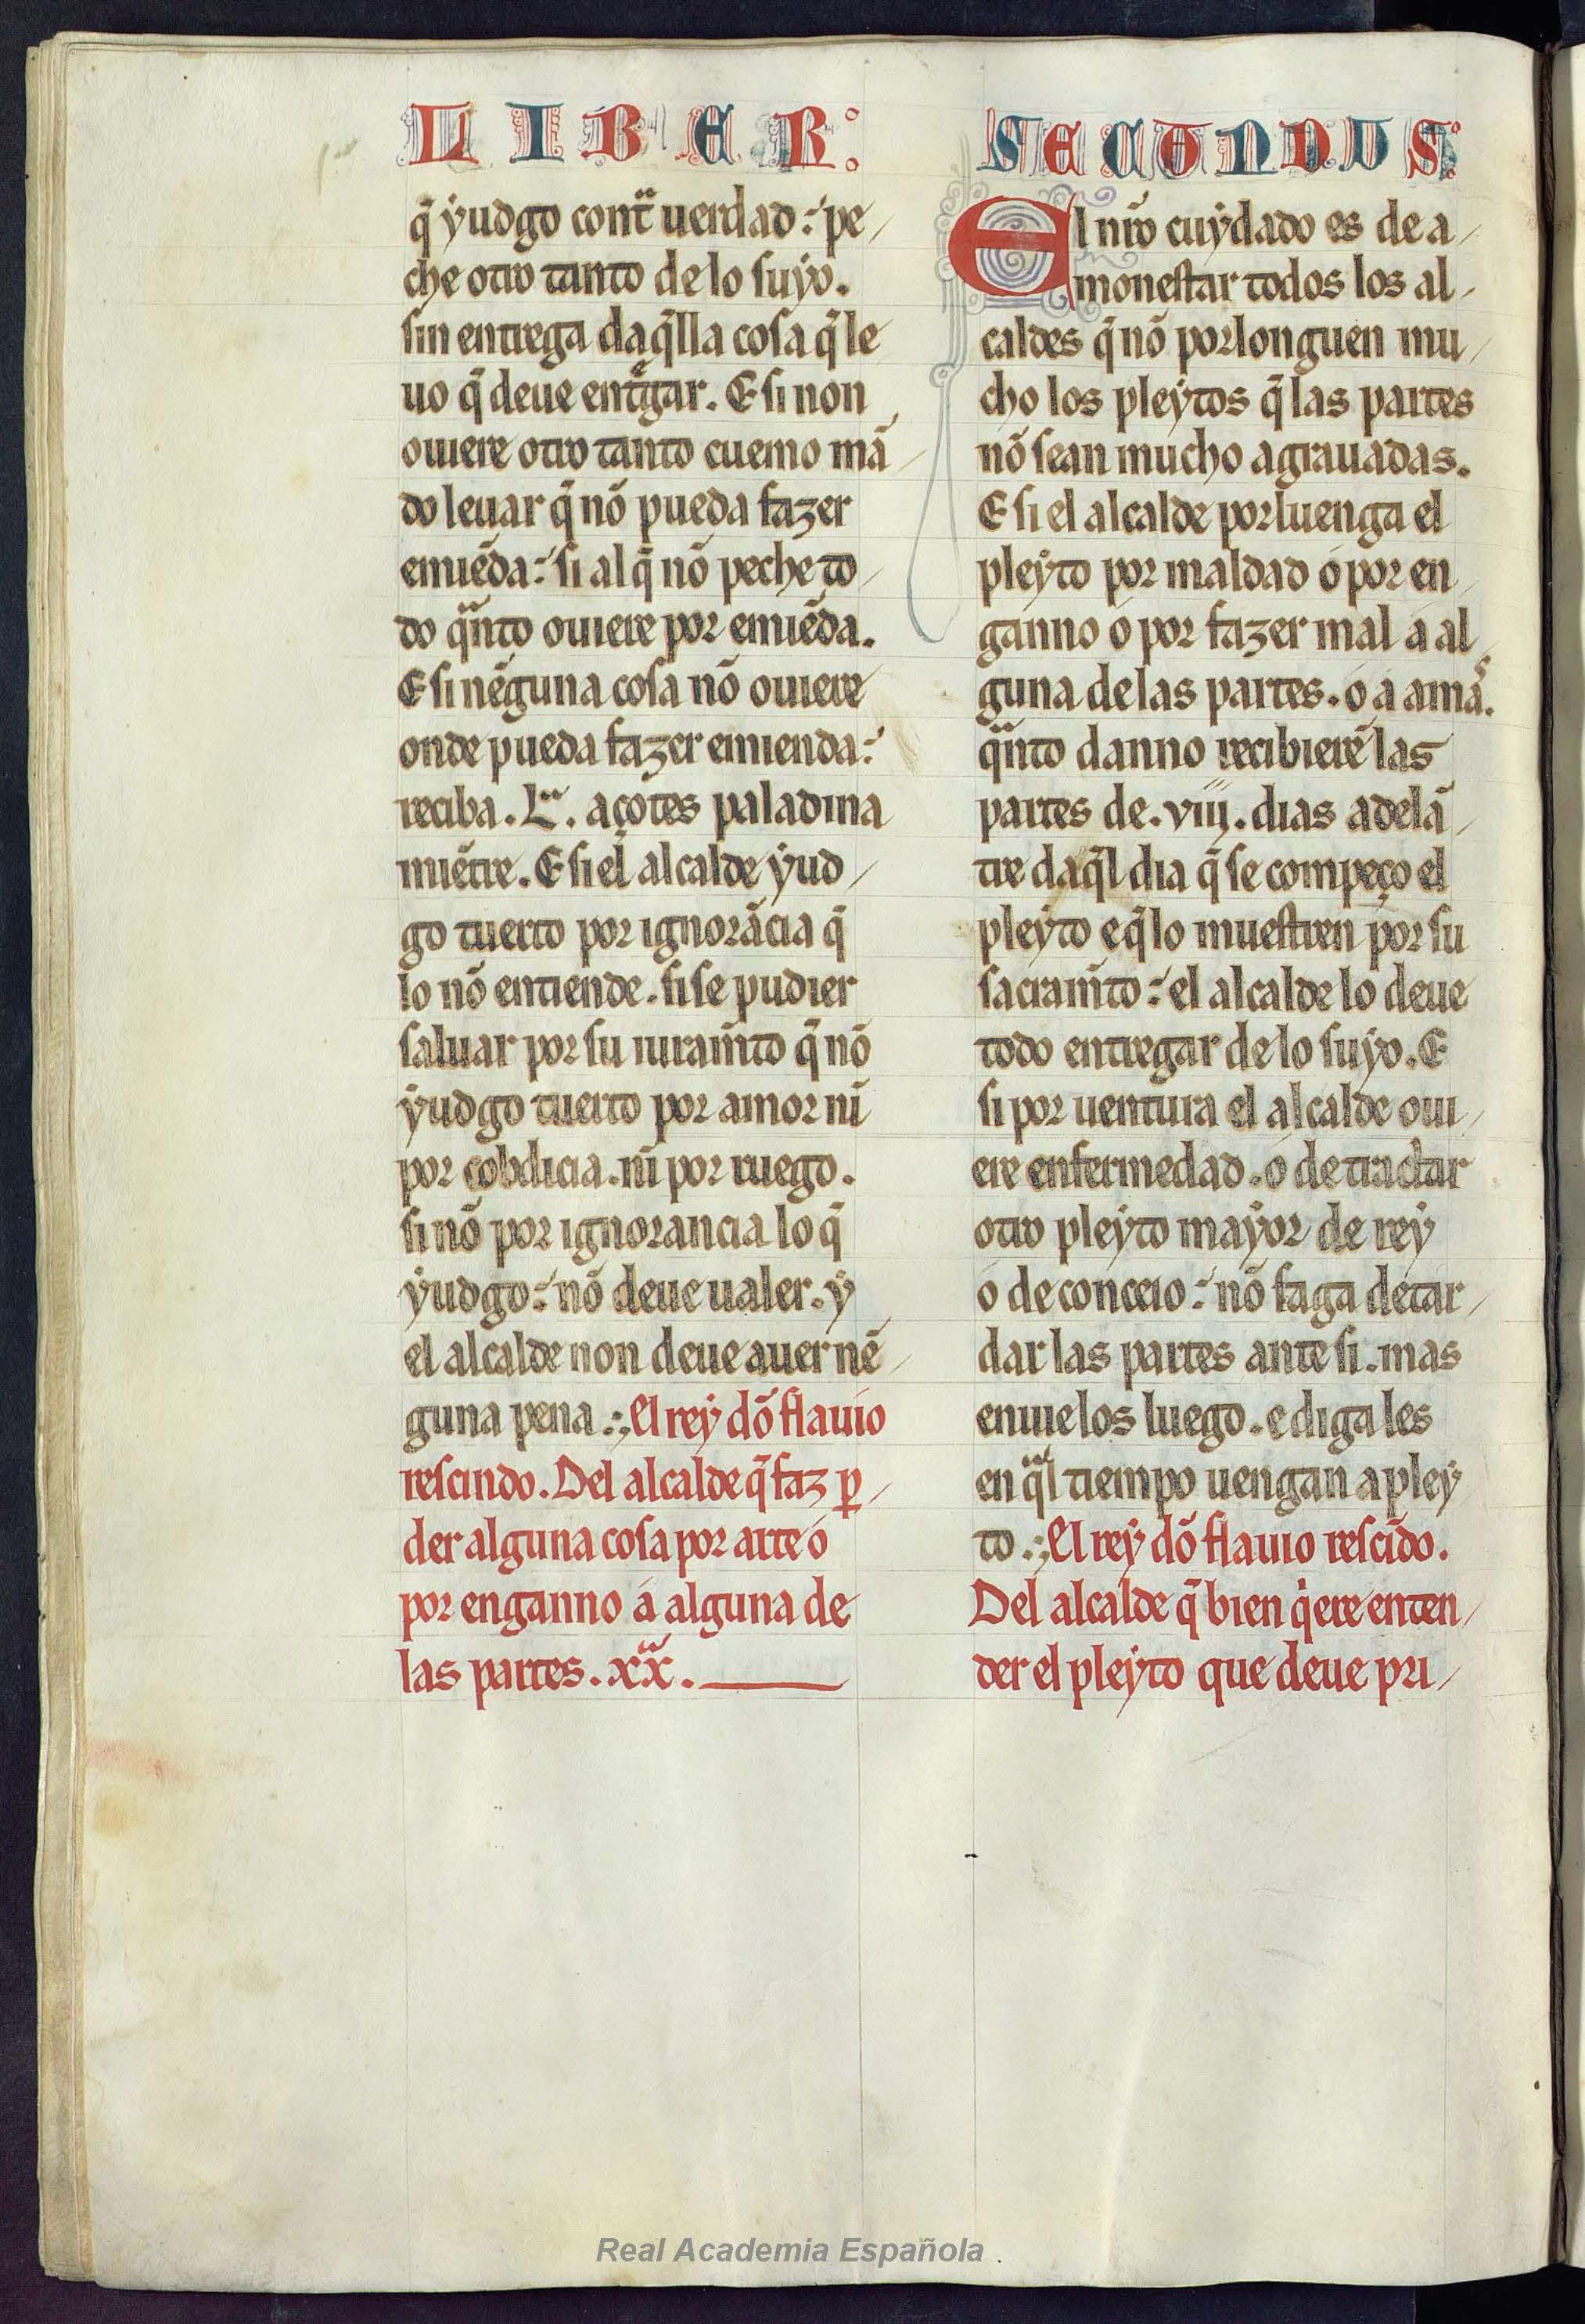 LIBER
q̃ yudgo contª uerdad: pe/
che otro tanto de lo suyo.
sin entrega daq̃lla cosa q̃ le
uo q̃ deue entᵉgar. E si non
ouiere otro tanto cuemo mã/
do leuar q̃ nõ pueda fazer
emiẽda: si al q̃ nõ peche to/
do qªnto ouiere por emiẽda.
E si nẽguna cosa nõ ouiere
onde pueda fazer emienda:
reciba .Lª. açotes paladina
miẽtre. E si el alcalde yud/
go tuerto por ignorãcia q̃
lo nõ entiende. si se pudier
saluar por su iuram̃to q̃ nõ
yudgo tuerto por amor nĩ
por cobdicia. nĩ por ruego.
si nõ por ignorancia lo q̃
yudgo: nõ deue ualer. y
el alcalde non deue auer nẽ/
guna pena.:, El rey dõ flauio
rescindo. Del alcalde q̃ faz ꝑ/
der alguna cosa por arte o
por enganno á alguna de
las partes .xxª.
SECUNDUS
El nr̃o cuydado es de a/
monestar todos los al/
caldes q̃ nõ porlonguen mu/
cho los pleytos q̃ las partes
nõ sean mucho agrauadas.
E si el alcalde porluenga el
pleyto por maldad ó por en/
ganno ó por fazer mal á al/
guna de las partes. ó á amãs.
qªnto danno recibierẽ las
partes de .viij. dias adelã/
tre daq̃l dia q̃ se compeço el
pleyto e q̃ lo muestren por su
sacram̃to: el alcalde lo deue
todo entregar de lo suyo. E
si por uentura el alcalde oui/
ere enfermedad. ó de tractar
otro pleyto mayor de rey
ó de conceio: nõ faga detar/
dar las partes ante si. mas
enuie los luego. e diga les
en qªl tiempo uengan a pley
to.:, El rey dõ flauio rescĩdo.
Del alcalde q̃ bien qⁱere enten/
der el pleyto que deue pri/
Real Academia Española